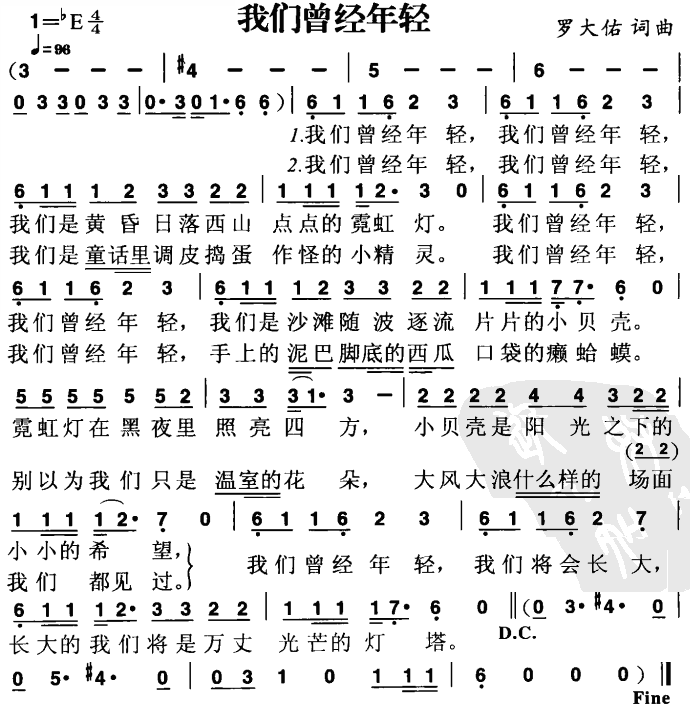 我们曾经年轻
1=♭E 4/4
罗大佑 词曲
♩=96
(3 - - - | #4 - - - | 5 - - - | 6 - - -
0 3 3 0 3 3 | 0· 3 0 1· 6 6) | 6 1 1 6 2 3 | 6 1 1 6 2 3 |
1.我们曾经年 轻， 我们曾经年轻，
2.我们曾经年 轻， 我们曾经年轻，
6 1 1 1 2 3 3 2 2 | 1 1 1 1 2· 3 0 | 6 1 1 6 2 3 |
我们是黄昏日落西山 点点的霓虹 灯。 我们曾经年轻，
我们是童话里调皮捣蛋 作怪的小精 灵。 我们曾经年轻，
6 1 1 6 2 3 | 6 1 1 1 2 3 3 2 2 | 1 1 1 7 7· 6 0 |
我们曾经年轻， 我们是沙滩随波逐流 片片的小贝壳。
我们曾经年轻， 手上的泥巴脚底的西瓜 口袋的癞蛤蟆。
5 5 5 5 5 5 2 | 3 3 3 1· 3 - | 2 2 2 2 4 4 3 2 2 |
霓虹灯在黑夜里 照亮四 方， 小贝壳是阳光之下的
(2 2)
别以为我们只是 温室的花 朵， 大风大浪什么样的 场面
1 1 1 1 2· 7 0 | 6 1 1 6 2 3 | 6 1 1 6 2 7 |
小小的希 望，
我们曾经年轻， 我们将会长大，
我们 都见 过。
6 1 1 1 2· 3 3 2 2 | 1 1 1 1 7· 6 0 ‖ (0 3· #4· 0 |
长大的我们将是万丈 光芒的灯 塔。 D.C.
0 5· #4· 0 | 0 3 1 0 1 1 1 | 6 0 0 0 ) ‖
Fine